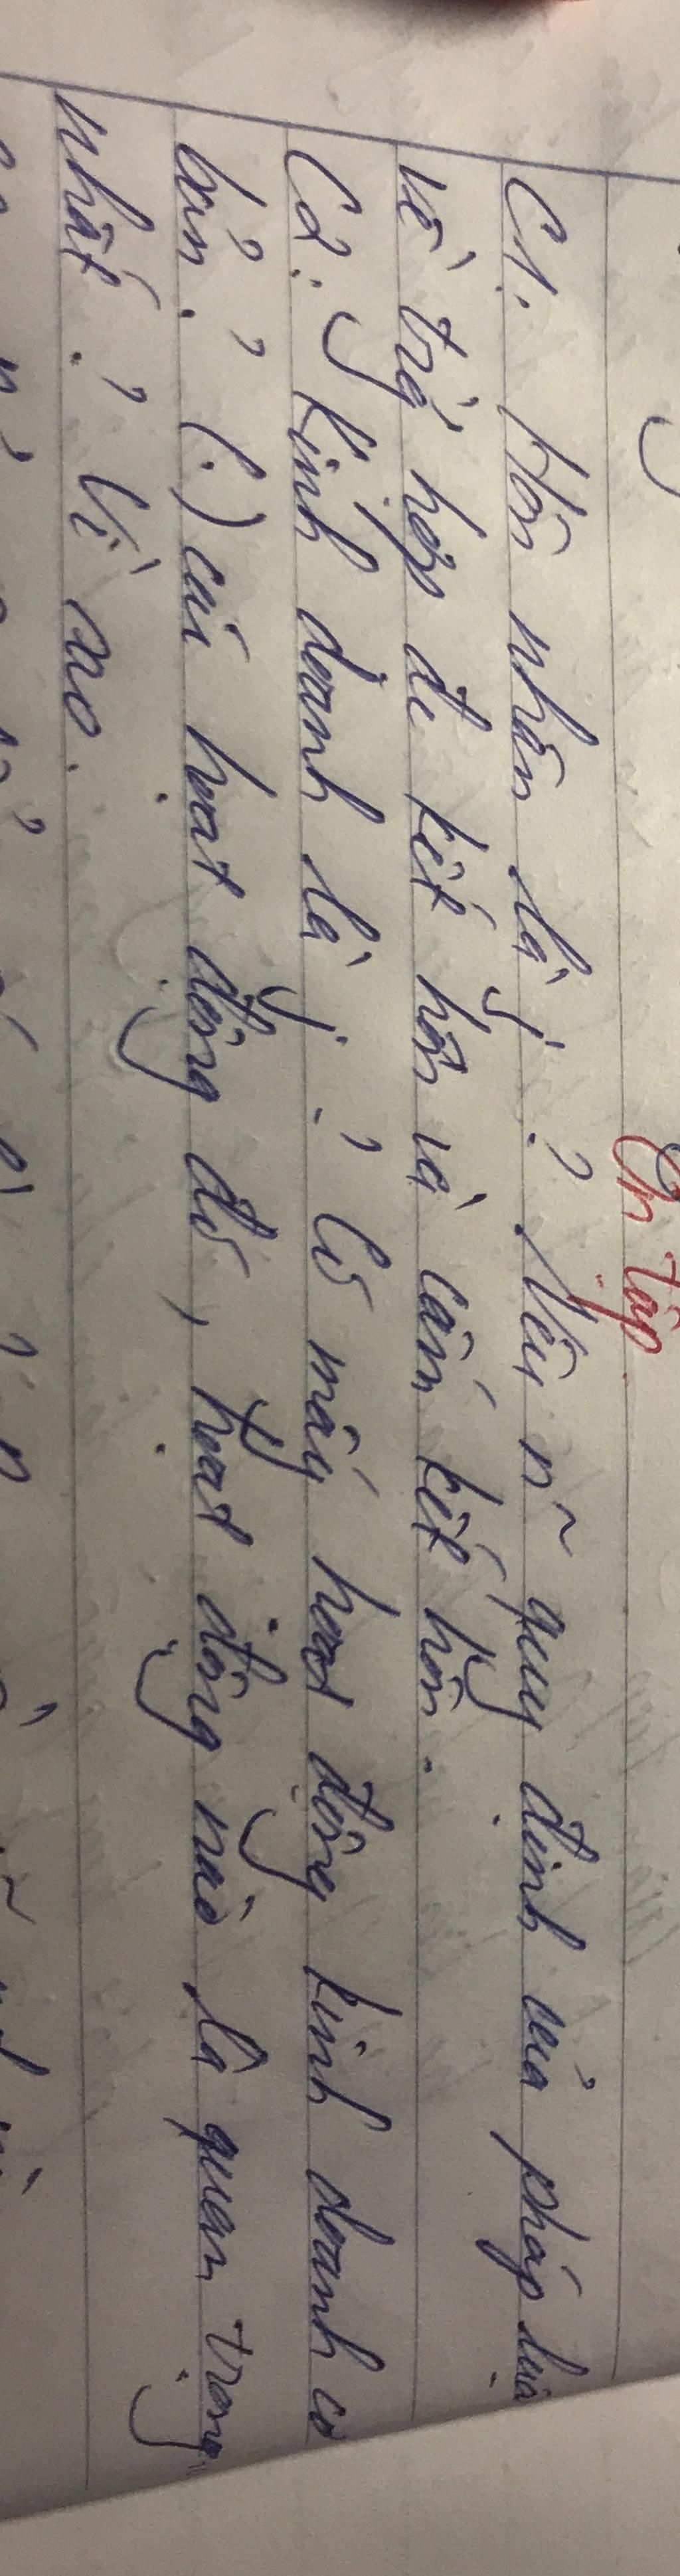 Ôn tập
C1. Hôn nhân là j ? Nêu n~ quy định của pháp luậ
về trg hợp đc kết hôn và cấm kết hôn.
C2. Kinh doanh là j ? Có mấy hoạt động kinh doanh cơ
bản ? (.) các hoạt động đó, hoạt động nào là quan trọng
nhất ? Vì sao.